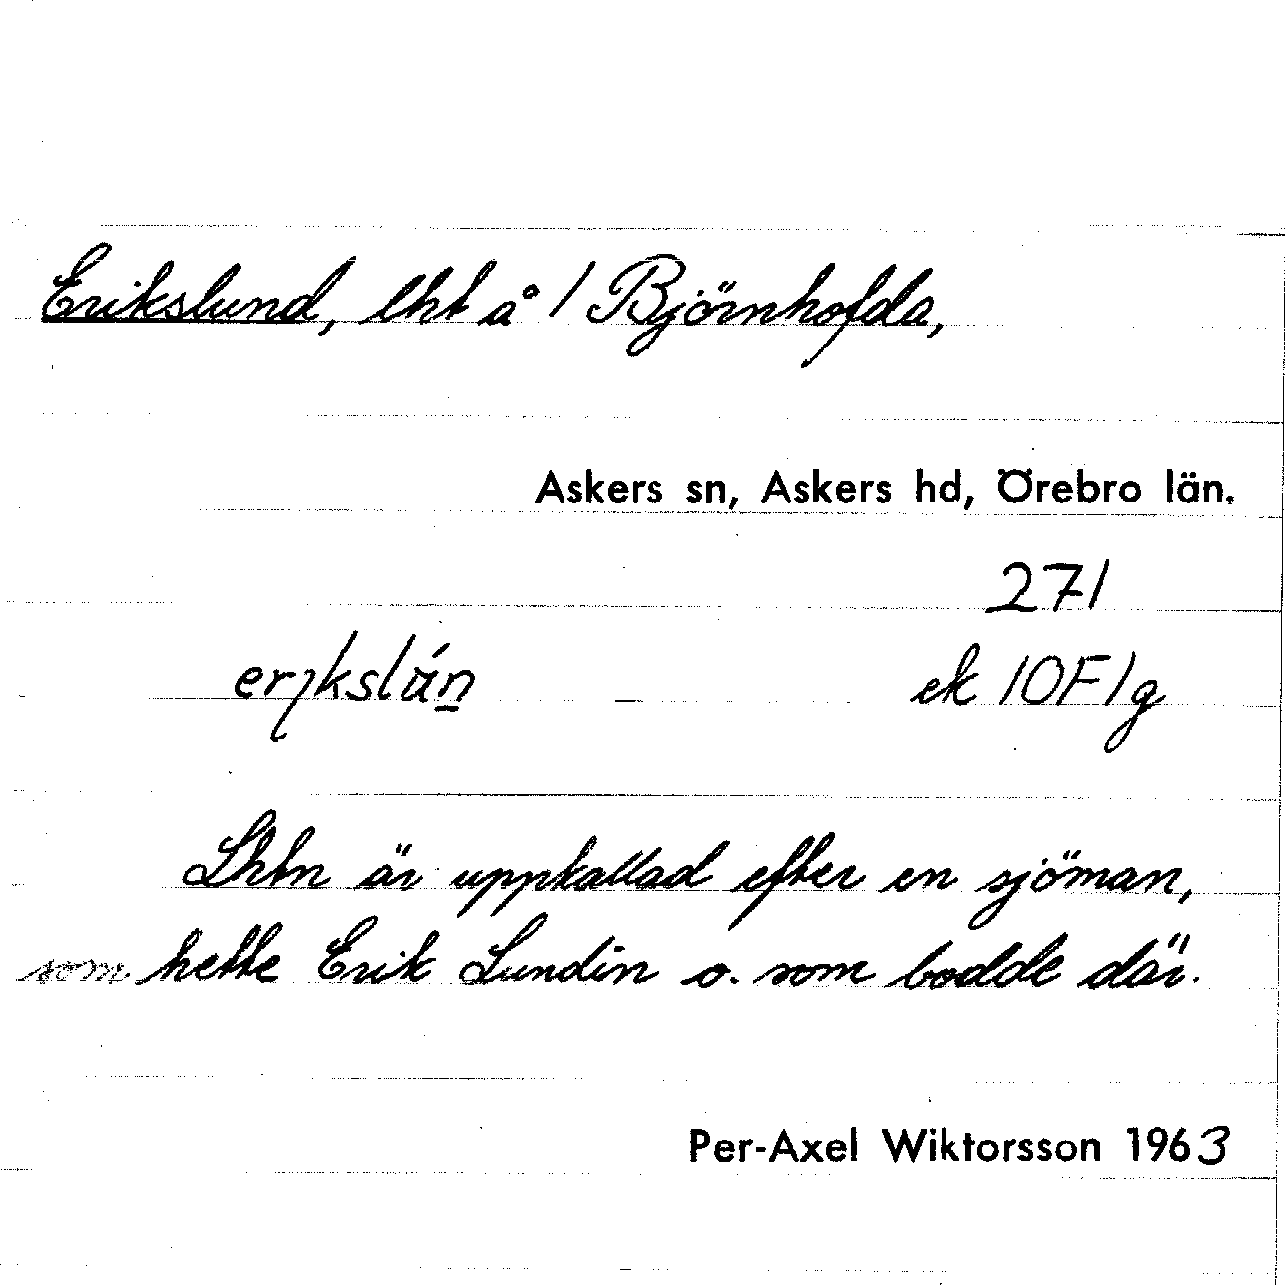 Erikslund, lht å 1 Björnhofda,
Askers sn, Askers hd, Örebro län.
271
ek 10F1g
Lhtn är uppkallad efter en sjöman,
som hette Erik Lundin o. som bodde där.
Per-Axel Wiktorsson 1963